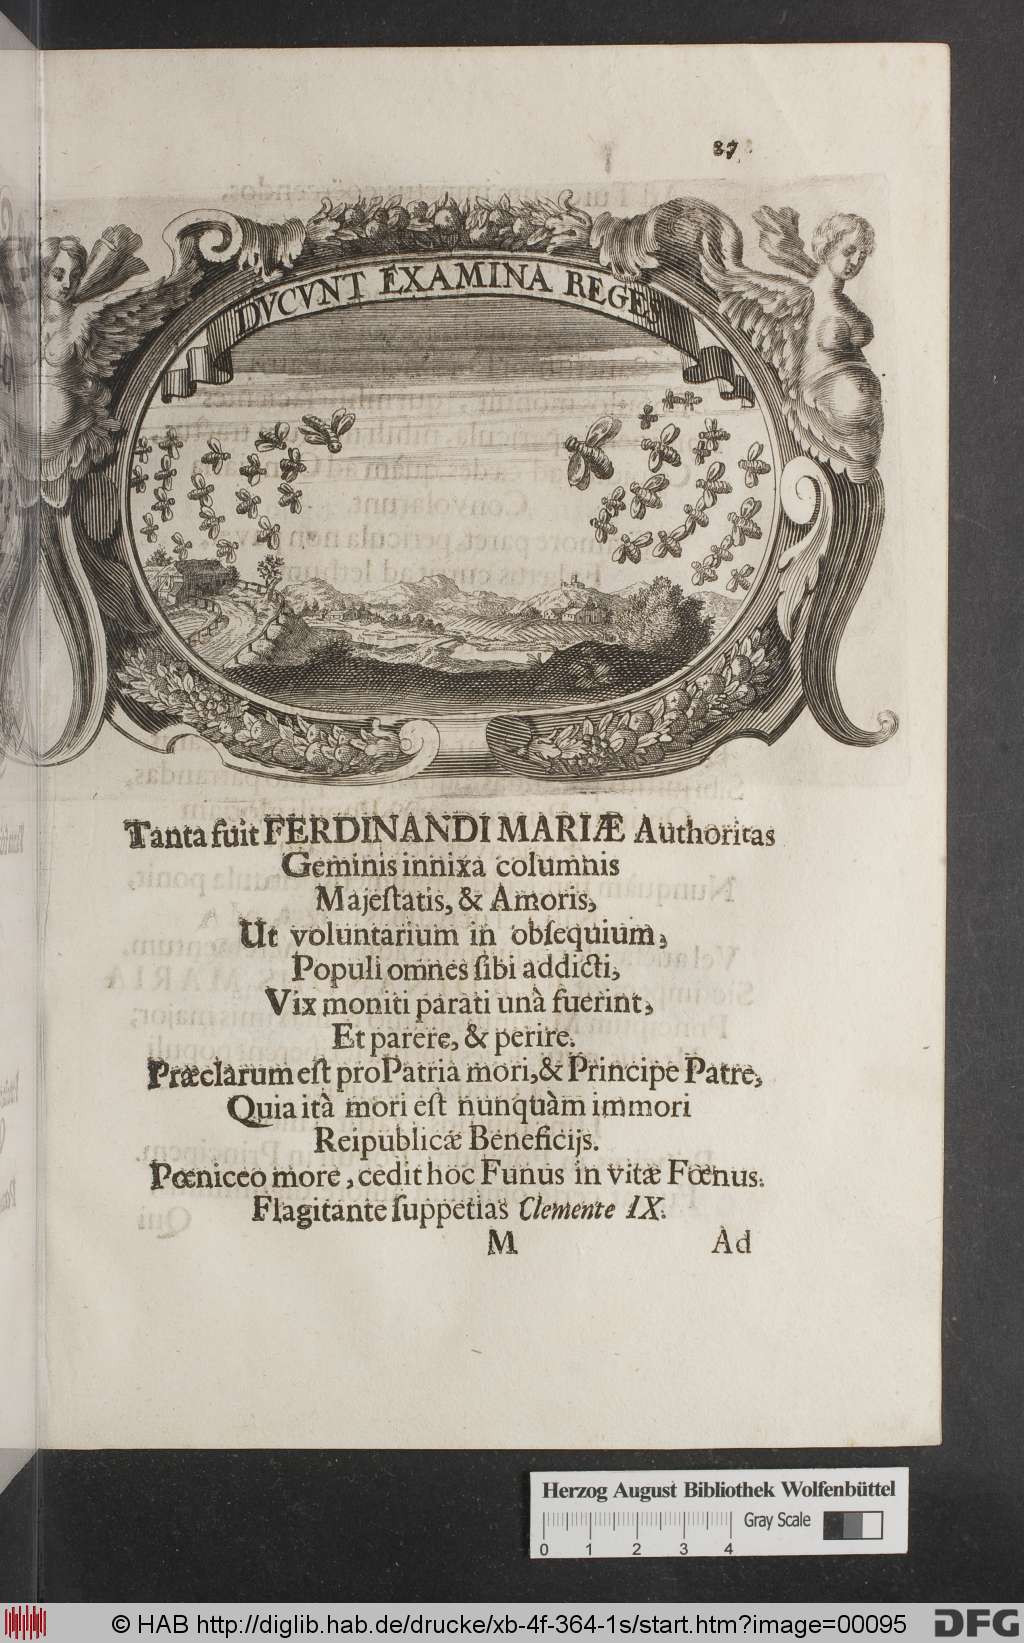 87
DVCVNT EXAMINA REGES
Tanta fuit FERDINANDI MARIÆ Authoritas
Geminis innixa columnis
Majeſtatis, & Amoris,
Ut voluntarium in obſequium,
Populi omnes ſibi addicti,
Vix moniti parati unà fuerint,
Et parere, & perire.
Præclarum eſt pro Patria mori, & Principe Patre,
Quia ità mori eſt nunquàm immori
Reipublicæ Beneficijs.
Pœniceo more, cedit hoc Funus in vitæ Fœnus.
Flagitante ſuppetias Clemente IX.
M Ad
Herzog August Bibliothek Wolfenbüttel
Gray Scale
0 1 2 3 4
© HAB http://diglib.hab.de/drucke/xb-4f-364-1s/start.htm?image=00095
DFG